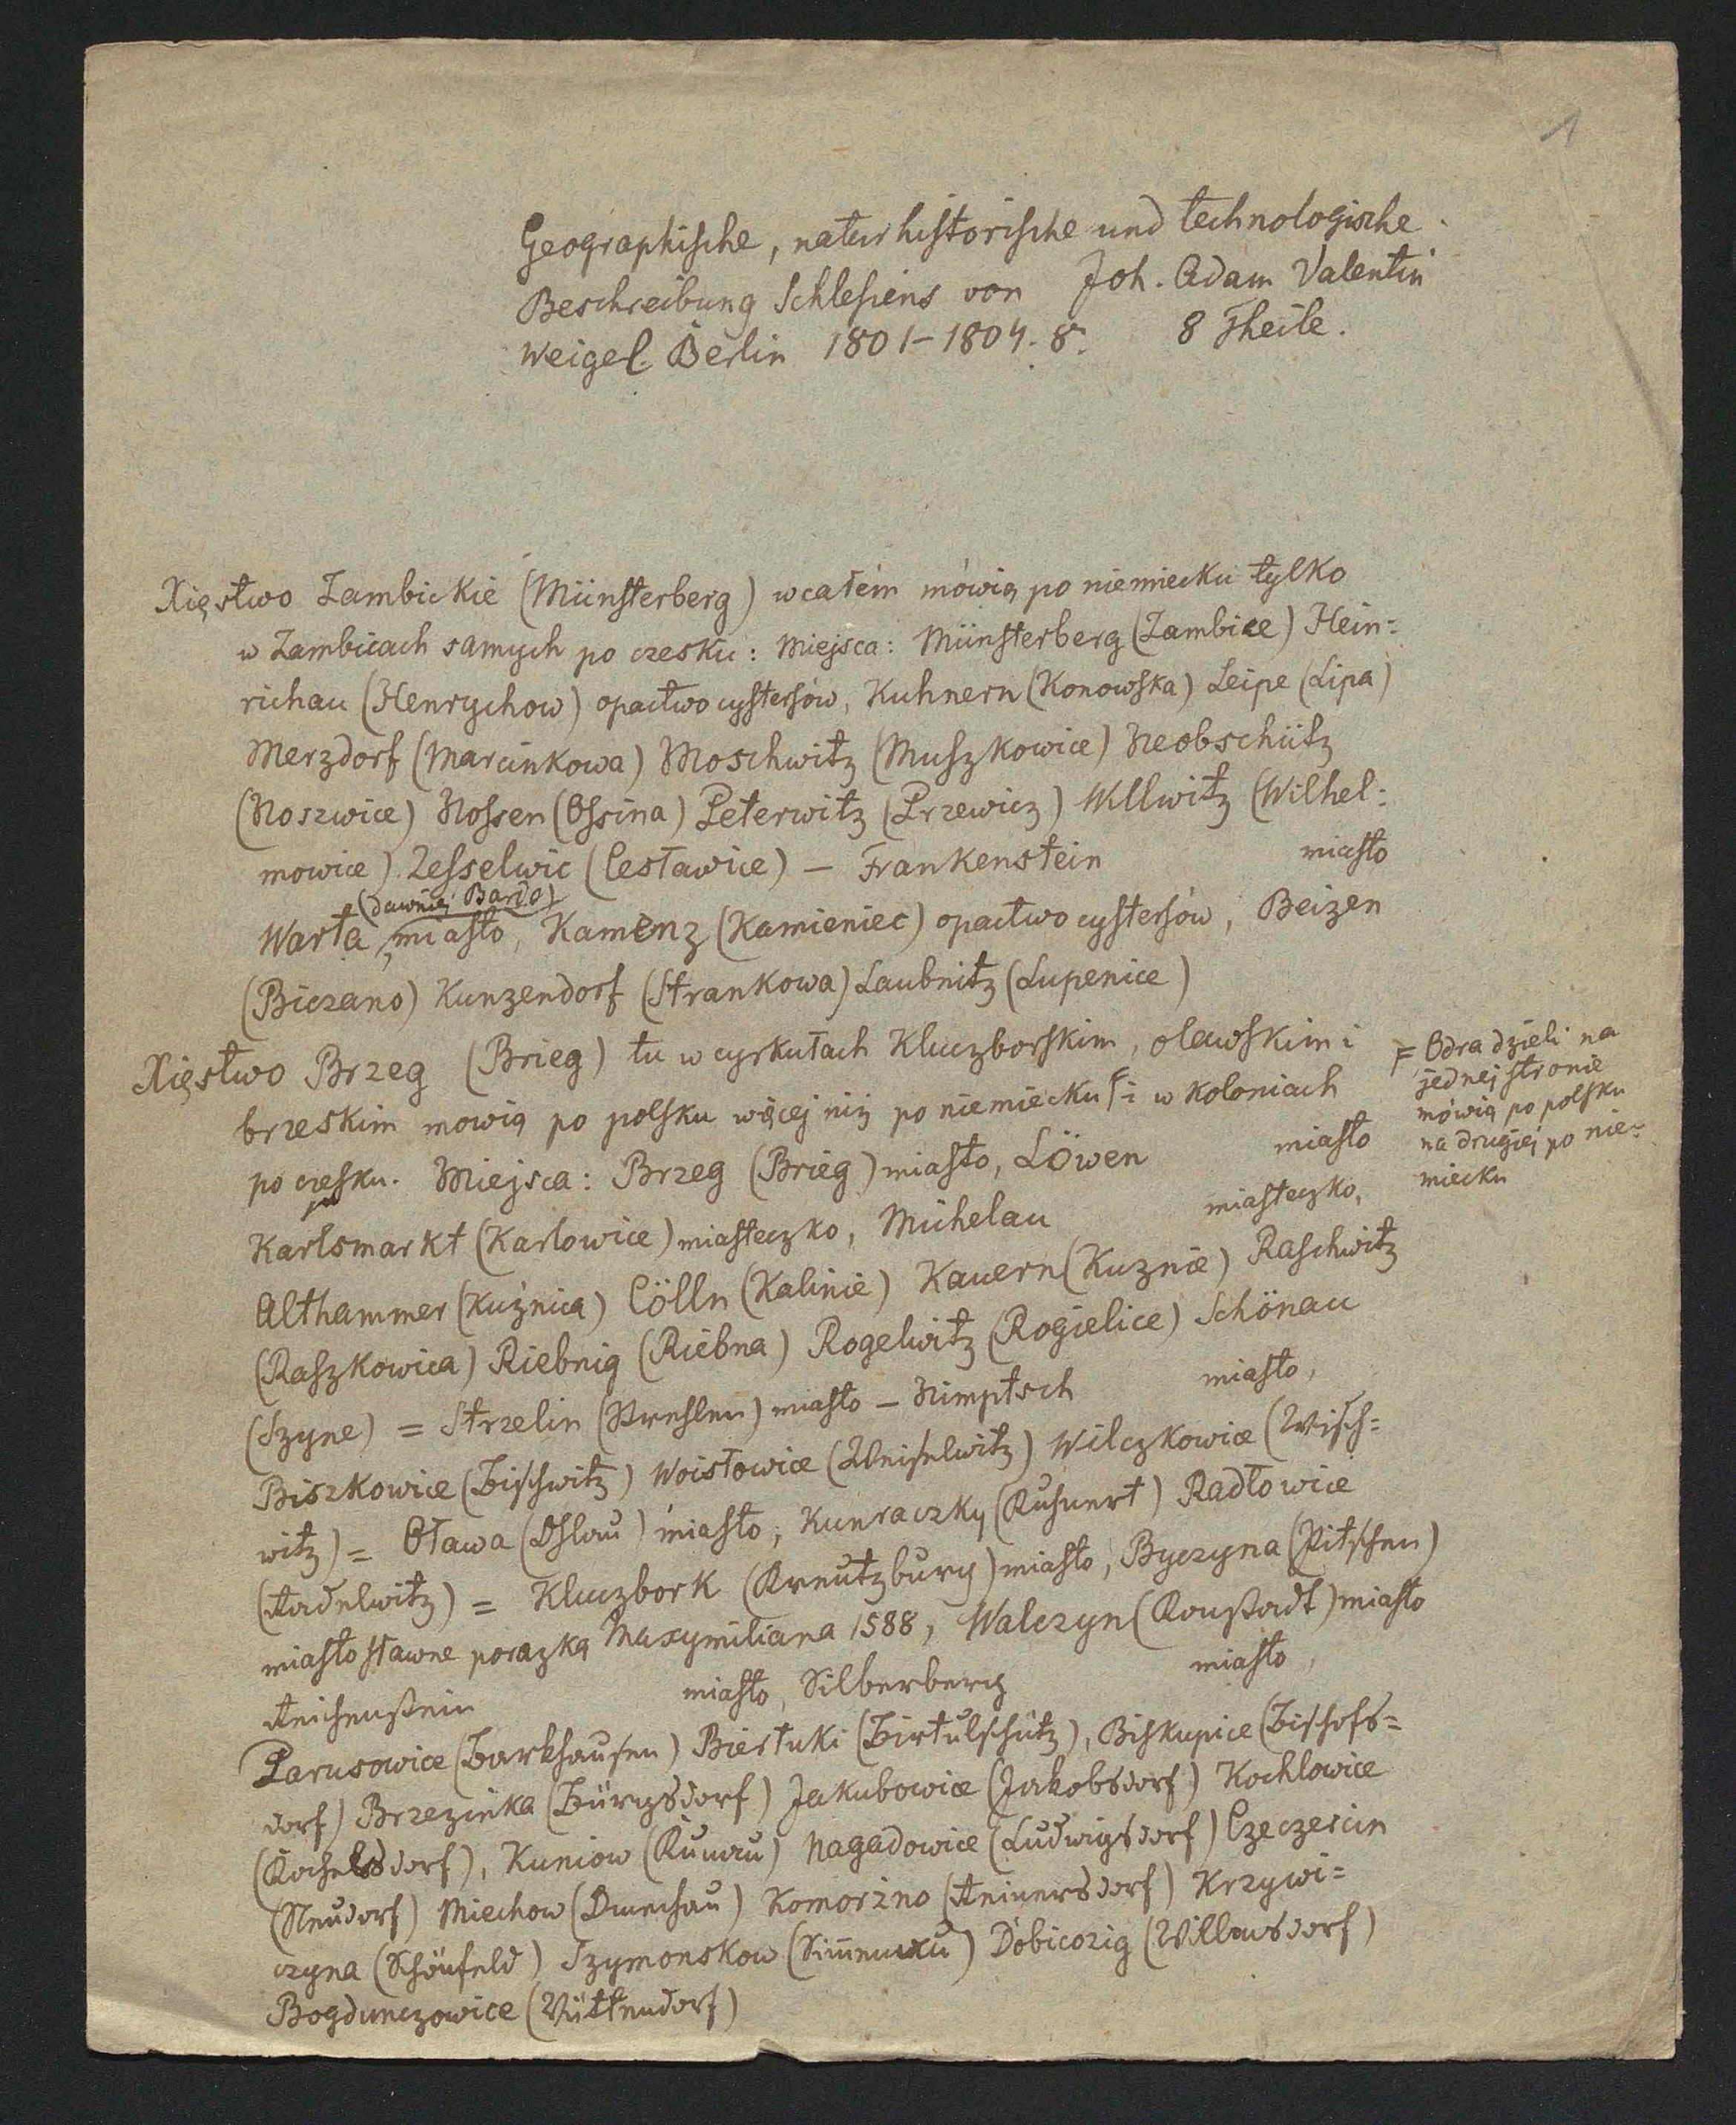 1
Geographische, naturhistorische und technologische
Beschreibung Schlesiens von Joh. Adam Valentin
Weigel. Berlin 1801–1804. 8º. 8 Theile.
Xięstwo Zambickie (Münsterberg) wcałém mówią po niemiecku tylko
w Zambicach samych po czesku: Miejsca: Münsterberg (Zambice) Hein=
richau (Henrychow) opactwo cystersów, Kuhnern (Konowska) Leipe (Lipa)
Merzdorf (Marcinkowa) Moschwitz (Muszkowice) Neobschütz
(Noszwice) Nossen (Ossina) Peterwitz (Przewicz) Willwitz (Wilhel=
mowice) Zesselwic (Cesławice) – Frankenstein miasto
(dawniej Bardo)
Warta, miasto, Kamenz (Kamieniec) opactwo cystersów, Beizen
(Biczano) Kunzendorf (Strankowa) Laubnitz (Lupenice)
Xięstwo Brzeg (Brieg) tu w cyrkułach Kluczborskim, oławskim i
brzeskim mowią po polsku więcej niż po niemiecku F i w koloniach
po czesku. Miejsca: Brzeg (Brieg) miasto, Löwen miasto
F Odra dzieli na
jednej stronie
mówią po polsku
na drugiej po nie=
miecku
Karlsmarkt (Karlowice) miasteczko, Michelau miasteczko,
Althammer (Kuźnica) Cölln (Kalinie) Kauern (Kuznie) Raschwitz
(Raszkowica) Riebnig (Riebna) Rogelwitz (Rogielice) Schönau
(Szyne) = Strzelin (Strehlen) miasto – Nimptsch miasto,
Biszkowice (Bischwitz) Woisłowice (Woiselwitz) Wilczkowice (Wilsch=
witz) = Oława (Ohlau) miasto, Kunraczky (Kuhnert) Radłowice
(Radelwitz) = Kluczbork (Kreutzburg) miasto, Byczyna (Pitschen)
miasto sławne porażką Maxymiliana 1588, Walczyn (Konstadt) miasto
Reichenstein miasto, Silberberg miasto,
Parusowice (Barkhausen) Biertuki (Birtulschütz), Biskupice (Bischofs=
dorf) Brzezinka (Bürgsdorf) Jakubowice (Jakobsdorf) Kochlowice
(Kochelsdorf), Kuniow (Kunau) Nagadowice (Ludwigsdorf) Czeczescin
(Neudorf) Miechow (Omechau) Komorzno (Reinersdorf) Krzywi=
czyna (Schönfeld) Szymonskow (Simmenau) Dobicozig (Willmsdorf)
Bogdunczowice (Wüttendorf)